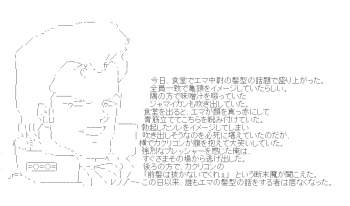 今日、食堂でエマ中尉の髪型の話題で盛り上がった。
全員一致で亀頭をイメージしていたらしい。
隅の方で味噌汁を啜っていた
ジャマイカンも吹き出していた。
食堂を出ると、エマが顔を真っ赤にして
青筋立ててこちらを睨み付けていた。
勃起したソレをイメージしてしまい
吹き出しそうなのを必死に堪えていたのだが、
横でカクリコンが腹を抱えて大笑いしていた。
強烈なプレッシャーを感じた俺は、
すぐさまその場から逃げ出した。
後ろの方で、カクリコンの
「前髪は抜かないでくれぇ」という断末魔が聞こえた。
この日以来、誰もエマの髪型の話をする者は居なくなった。